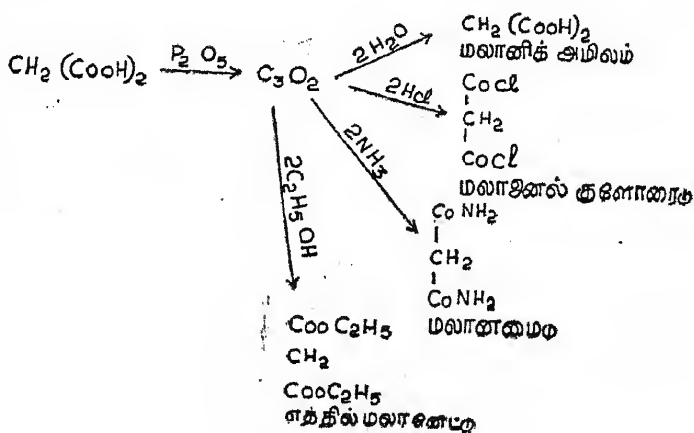 CH2 (COOH)2 P2 O5 C3O2 2H2O CH2 (COOH)2
மலானிக் அமிலம்
2Hcl CoCl
CH2
COCl
மலானைல் குளோரைடு
2NH3 Co NH2
CH2
Co NH2
மலானமைடு
2C2H5OH
Coo C2H5
CH2
CooC2H5
எத்தில் மலானேட்டு